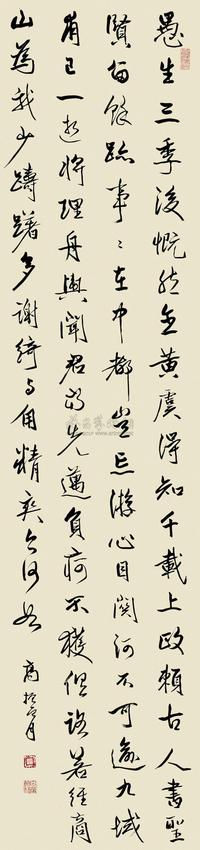 愚生三季後慨然念黃虞得知千載上政賴古人書聖
賢留餘跡事々在中都豈忘游心目關河不可逾九域
甫已一逝將理舟輿聞君當先邁負痾不獲俱路若經商
山為我少躊躇多謝綺与甪精爽今何如